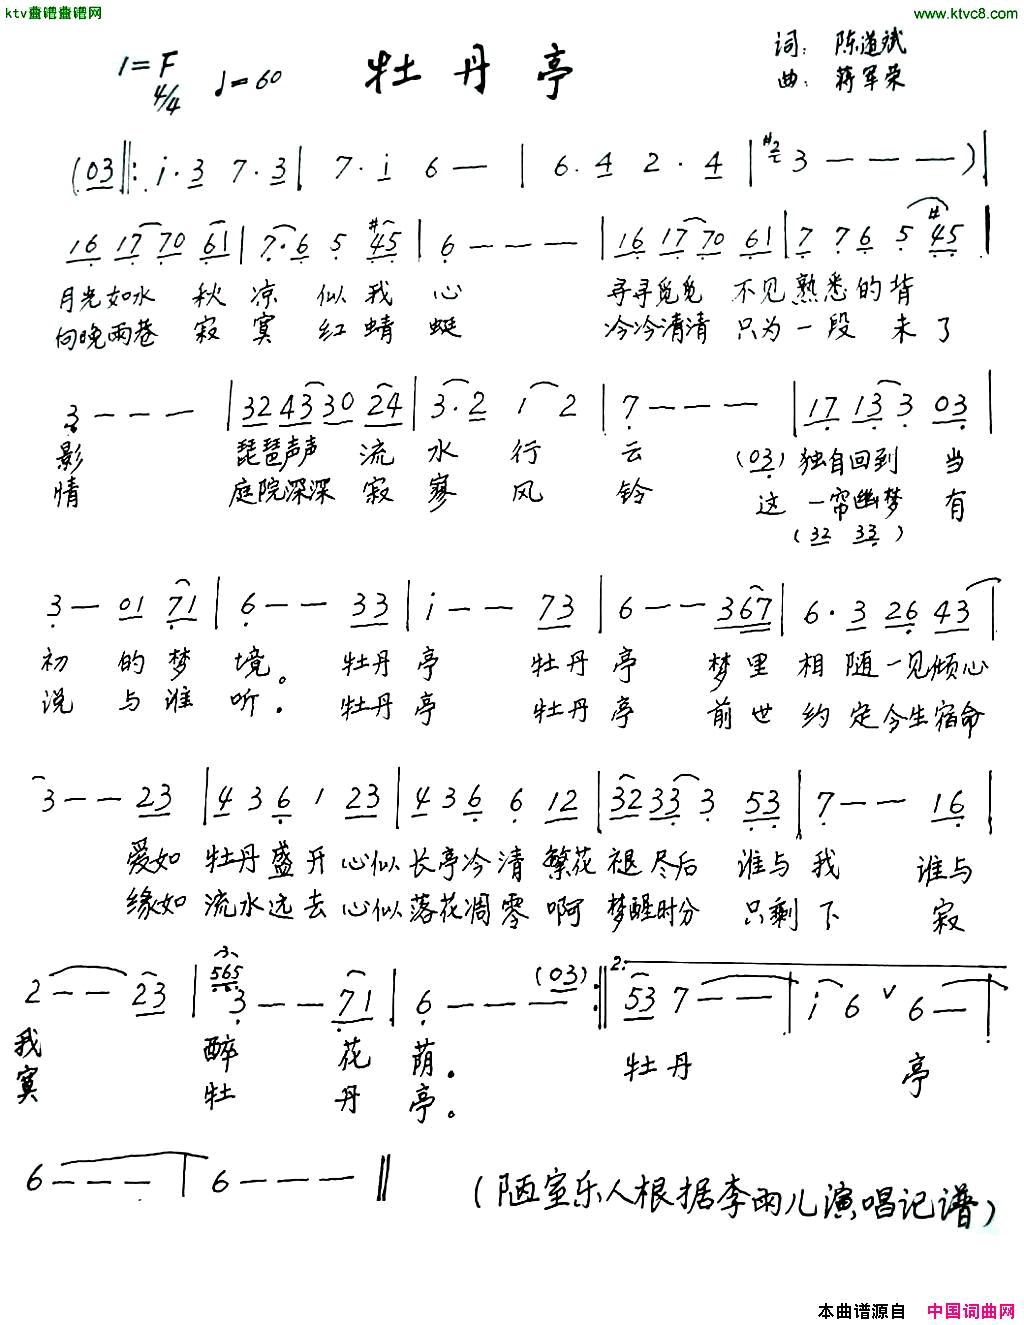 ktv壹谱壹谱网
www.ktvc8.com
1=F 4/4 ♩=60
牡丹亭
词：陈道斌
曲：蒋军荣
(03‖: i·3 7·3 | 7·i 6 — | 6·4 2·4 | #2 3 — — — )|
16 17 70 61 | 7·6 5 #45 | 6 — — — | 16 17 70 61 | 7 76 5 #45 |
月光如水 秋凉 似我 心 寻寻觅觅 不见熟悉的背
向晚雨巷 寂寞 红蜻 蜓 冷冷清清 只为一段未了
3 — — — | 32 43 30 24 | 3·2 1 2 | 7 — — — | 17 13 3 03 |
影 琵琶声声 流水行云 (03) 独自回到 当
情 庭院深深 寂寥风铃 这 一帘幽梦 有
(32 33)
3 — 01 71 | 6 — — 33 | i — — 73 | 6 — — 367 | 6·3 26 43 |
初 的梦境。 牡丹亭 牡丹亭 梦里相随一见倾心
说 与谁听。 牡丹亭 牡丹亭 前世约定今生宿命
3 — — 23 | 4 3 6 1 23 | 4 3 6 6 12 | 32 33 3 53 | 7 — — 16 |
爱如 牡丹盛开心似长亭冷清 繁花褪尽后 谁与我 谁与
缘如 流水远去心似落花凋零 啊 梦醒时分 只剩下 寂
2 — — 23 | 565 3 — — 71 | 6 — — — (03) :‖ 2. 53 7 — — | i 6 ∨ 6 — |
我 醉 花荫。 牡丹 亭
寞 牡 丹亭。
6 — — — | 6 — — — ‖
（陋室乐人根据李雨儿演唱记谱）
本曲谱源自 中国词曲网